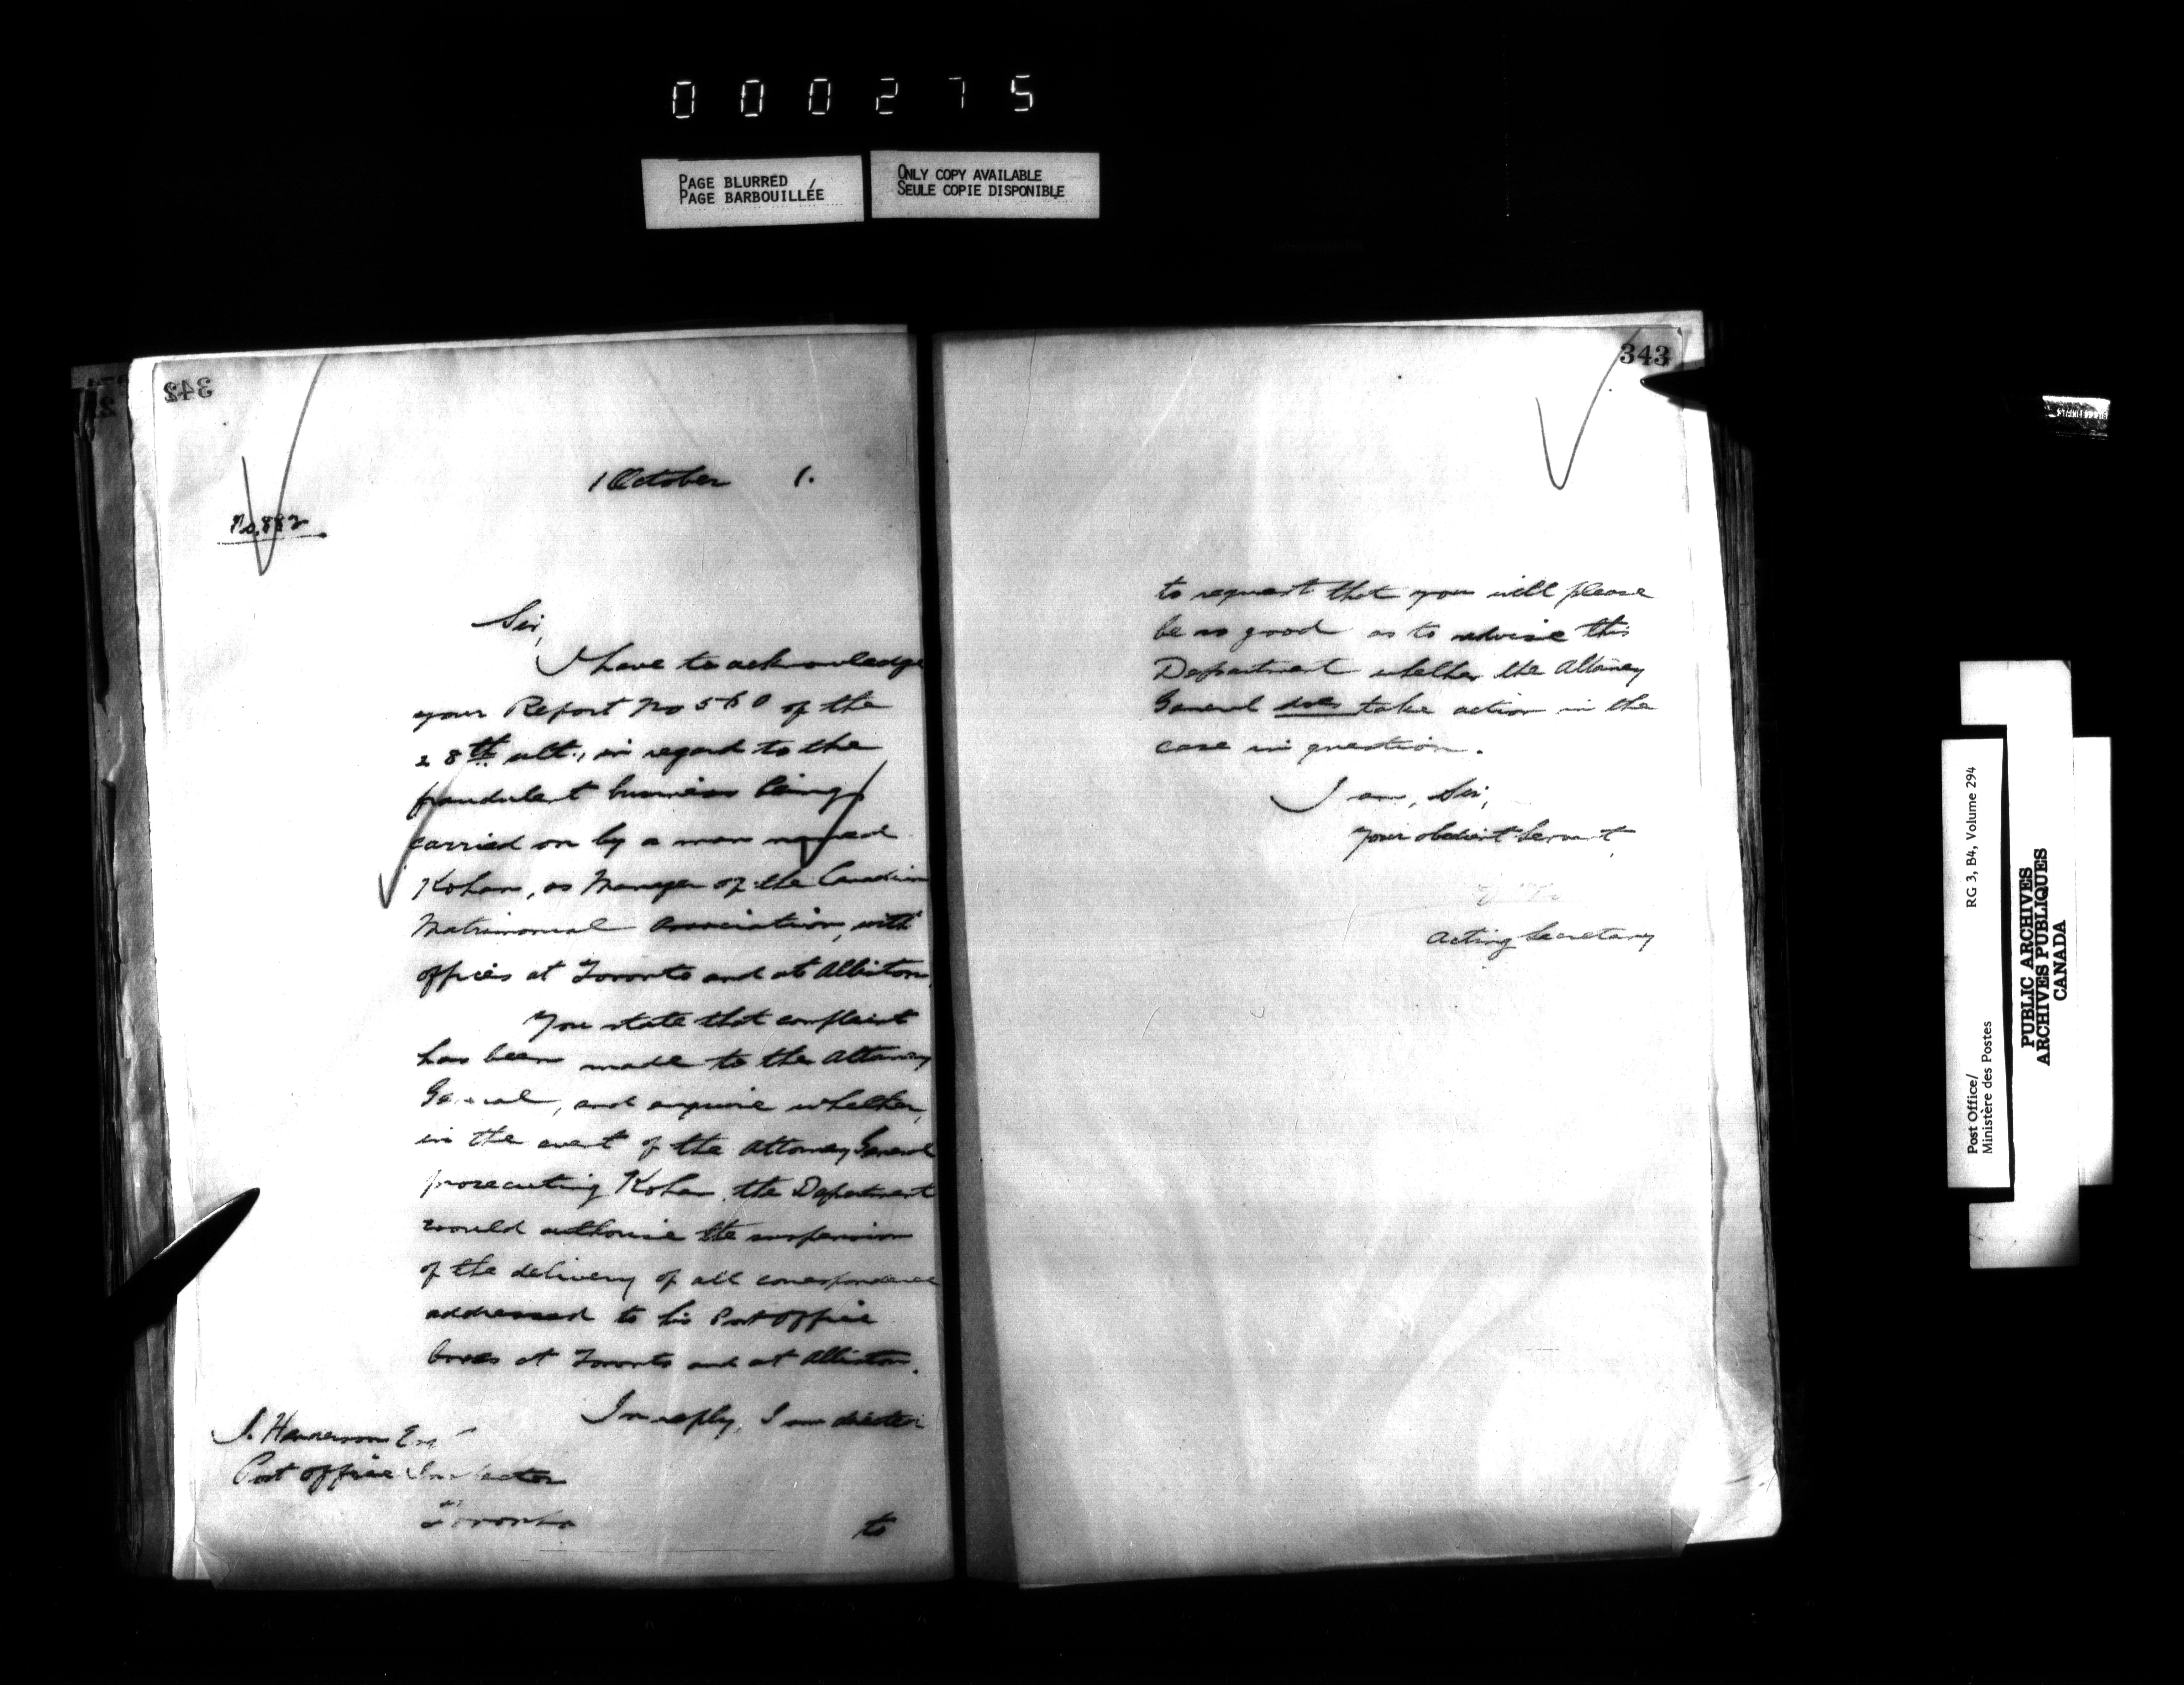 000275
PAGE BLURRED
PAGE BARBOUILLÉE
ONLY COPY AVAILABLE
SEULE COPIE DISPONIBLE
342
1 October 1.
No. 882
Sir,
I have to acknowledge
your Report No 560 of the
28th ult., in regard to the
fraudulent business being
carried on by a man named
Kohan, as Manager of the Canadian
Matrimonial Association, with
offices at Toronto and at Alliston.
You state that complaint
has been made to the Attorney
General, and enquire whether,
in the event of the Attorney General
prosecuting Kohan, the Department
would authorise the suspension
of the delivery of all correspondence
addressed to his Post Office
boxes at Toronto and at Alliston.
In reply, I am directed
J. Henderson Esq
Post Office Inspector
Toronto
to
343
to request that you will please
be so good as to advise this
Department whether the Attorney
General does take action in the
case in question.
I am, Sir,
Your obedient Servant,
Acting Secretary
Post Office/
Ministère des Postes
RG 3, B4, Volume 294
PUBLIC ARCHIVES
ARCHIVES PUBLIQUES
CANADA